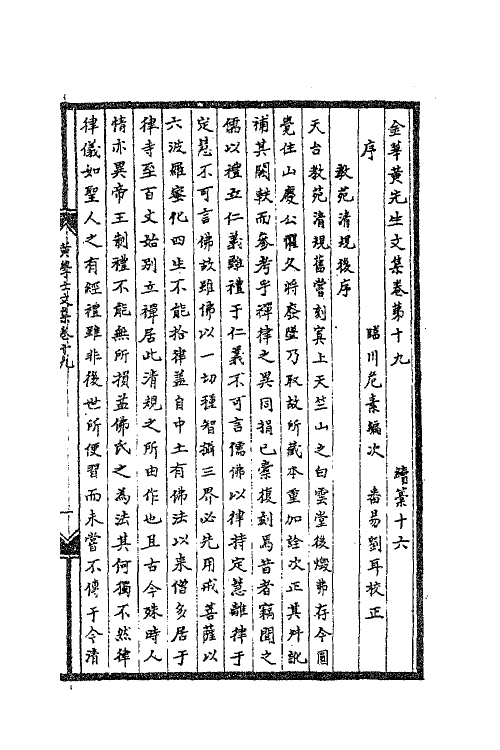 金華黃先生文集卷第十九　續藁十六
序　臨川危素編次　番易劉耳校正
教苑清規後序
天台教苑清規舊嘗刻寘上天竺山之白雲堂後燬弗存今圓
覺住山慶公懼久將廢墜乃取故所藏本重加詮次正其舛訛
補其闕軼而參考乎禪律之異同捐已橐復刻焉昔者竊聞之
儒以禮立仁義雖禮于仁義不可言儒佛以律持定慧離律于
定慧不可言佛故雖佛以一切種智攝三界必先用戒菩薩以
六波羅蜜化四生不能捨律蓋自中土有佛法以來僧多居于
律寺至百丈始別立禪居此清規之所由作也且古今殊時人
情亦異帝王制禮不能無所損益佛氏之為法其何獨不然律
律儀如聖人之有經禮雖非後世所便習而未嘗不傳于今清
黃學士文集卷十九
一